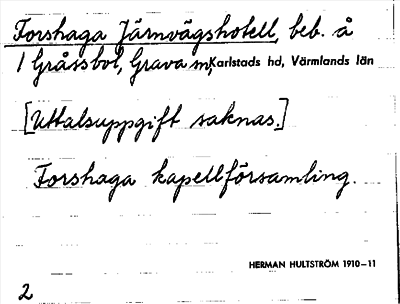 Forshaga Järnvägshotell, beb. å
1 Gråssbol, Grava sn, Karlstads hd, Värmlands län
[Uttalsuppgift saknas.]
Forshaga kapellförsamling.
HERMAN HULTSTRÖM 1910-11
2